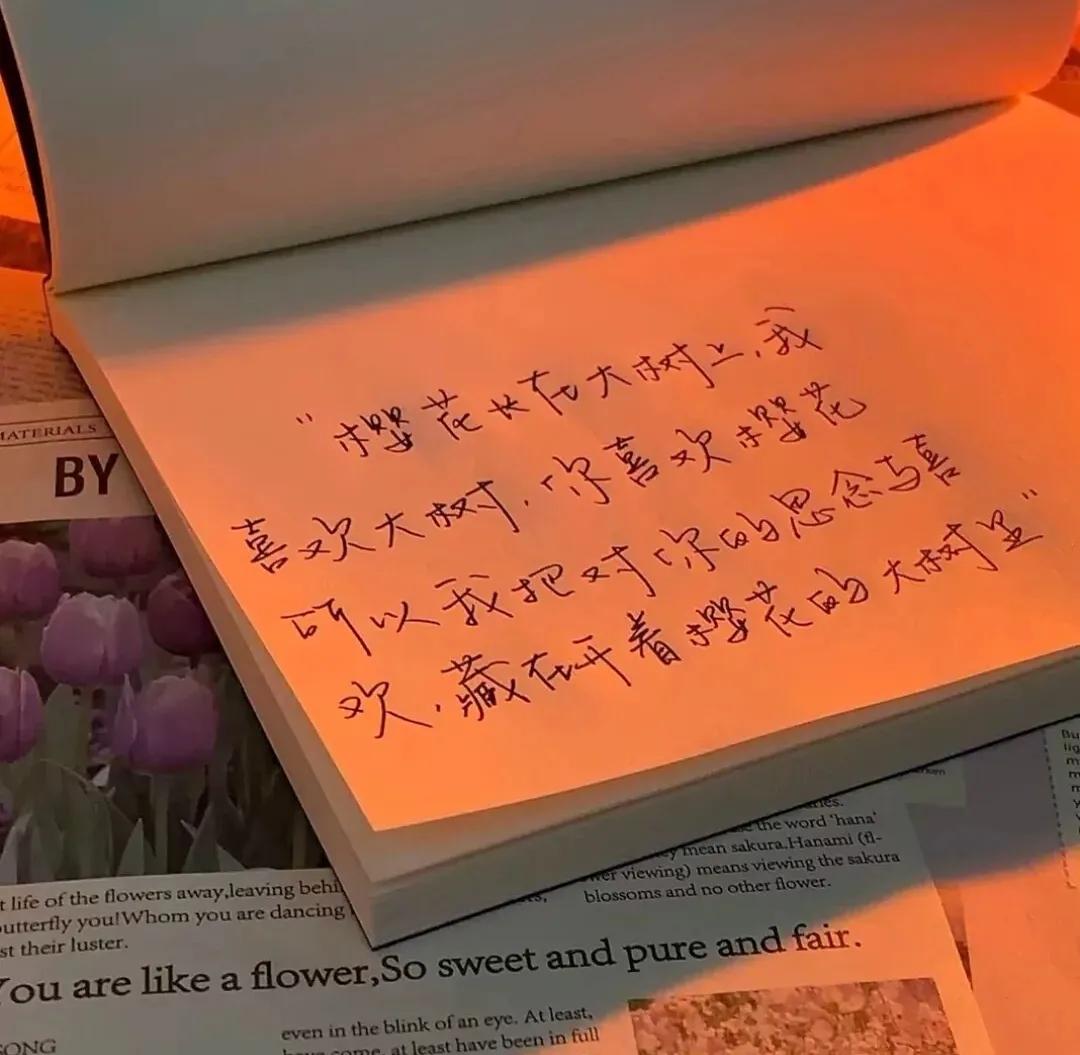 “樱花长在大树上,我
喜欢大树,你喜欢樱花
所以我把对你的思念与喜
欢,藏在开着樱花的大树里”
MATERIALS
BY
t life of the flowers away,leaving behi
utterfly you!Whom you are dancing
st their luster.
the word ‘hana’
mean sakura.Hanami (fl-
er viewing) means viewing the sakura
blossoms and no other flower.
You are like a flower,So sweet and pure and fair.
SONG
even in the blink of an eye. At least,
come, at least have been in full
Bu
lig
m